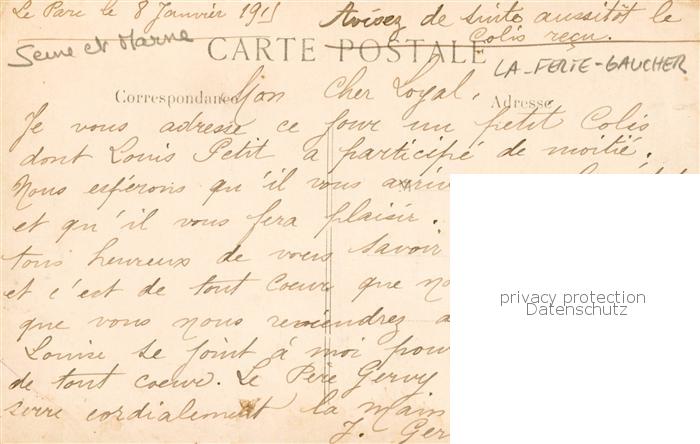 Le Parc le 8 Janvier 191
Avisez de suite aussitôt le
Colis reçu.
Seine et Marne
CARTE POSTALE
LA-FERTE-GAUCHER
Correspondance
Adresse
Mon Cher Loyal,
Je vous adresse ce jour un petit Colis
dont Louis Petit a participé de moitié.
Nous espérons qu'il vous
et qu'il vous fera plaisir.
tous heureux de vous savoir
et c'est de tout coeur que
que vous nous reviendrez
Louise se joint à moi pour
de tout coeur. Le Père Gervy
serre cordialement la main
J. Ger
privacy protection
Datenschutz